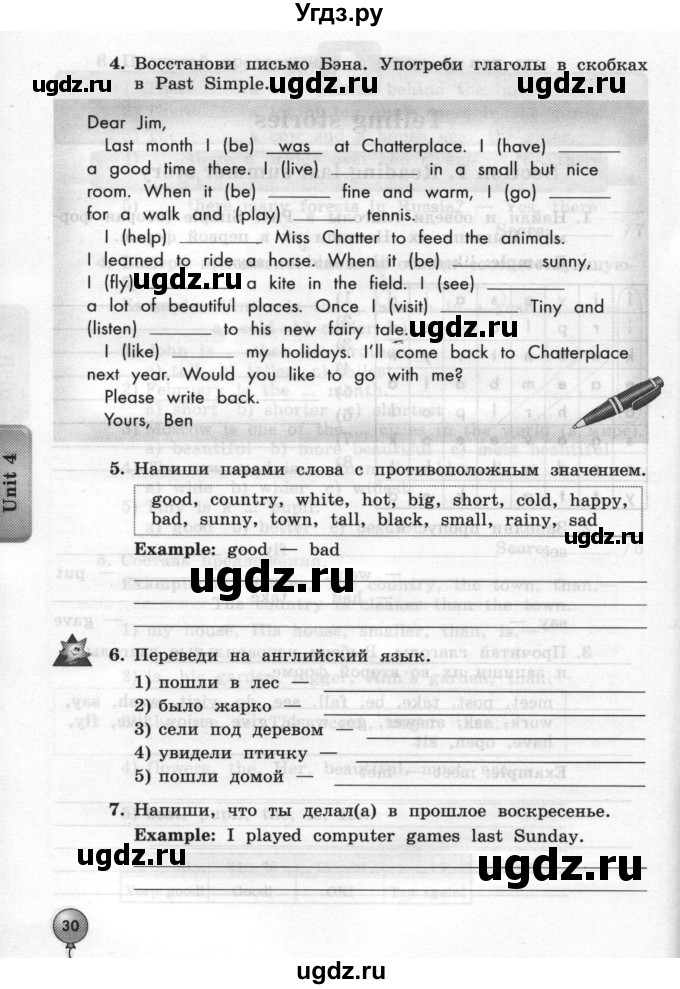 Угдз.ру
4. Восстанови письмо Бэна. Употреби глаголы в скобках
в Past Simple.
ugdz.ru ugdz.ru ugdz.ru
Dear Jim,
Last month I (be) was at Chatterplace. I (have) ______
a good time there. I (live) ______ in a small but nice
room. When it (be) ______ fine and warm, I (go) ______
for a walk and (play) ______ tennis.
I (help) ______ Miss Chatter to feed the animals.
I learned to ride a horse. When it (be) ______ sunny,
I (fly) ______ a kite in the field. I (see) ______
a lot of beautiful places. Once I (visit) ______ Tiny and
(listen) ______ to his new fairy tale.
I (like) ______ my holidays. I'll come back to Chatterplace
next year. Would you like to go with me?
Please write back.
Yours, Ben
ugdz.ru
ugdz.ru
ugdz.ru
Unit 4
5. Напиши парами слова с противоположным значением.
good, country, white, hot, big, short, cold, happy,
bad, sunny, town, tall, black, small, rainy, sad
Example: good — bad
ugdz.ru
ugdz.ru
6. Переведи на английский язык.
1) пошли в лес —
2) было жарко —
3) сели под деревом —
4) увидели птичку —
5) пошли домой —
ugdz.ru
ugdz.ru
7. Напиши, что ты делал(а) в прошлое воскресенье.
Example: I played computer games last Sunday.
ugdz.ru
ugdz.ru
30
ugdz.ru